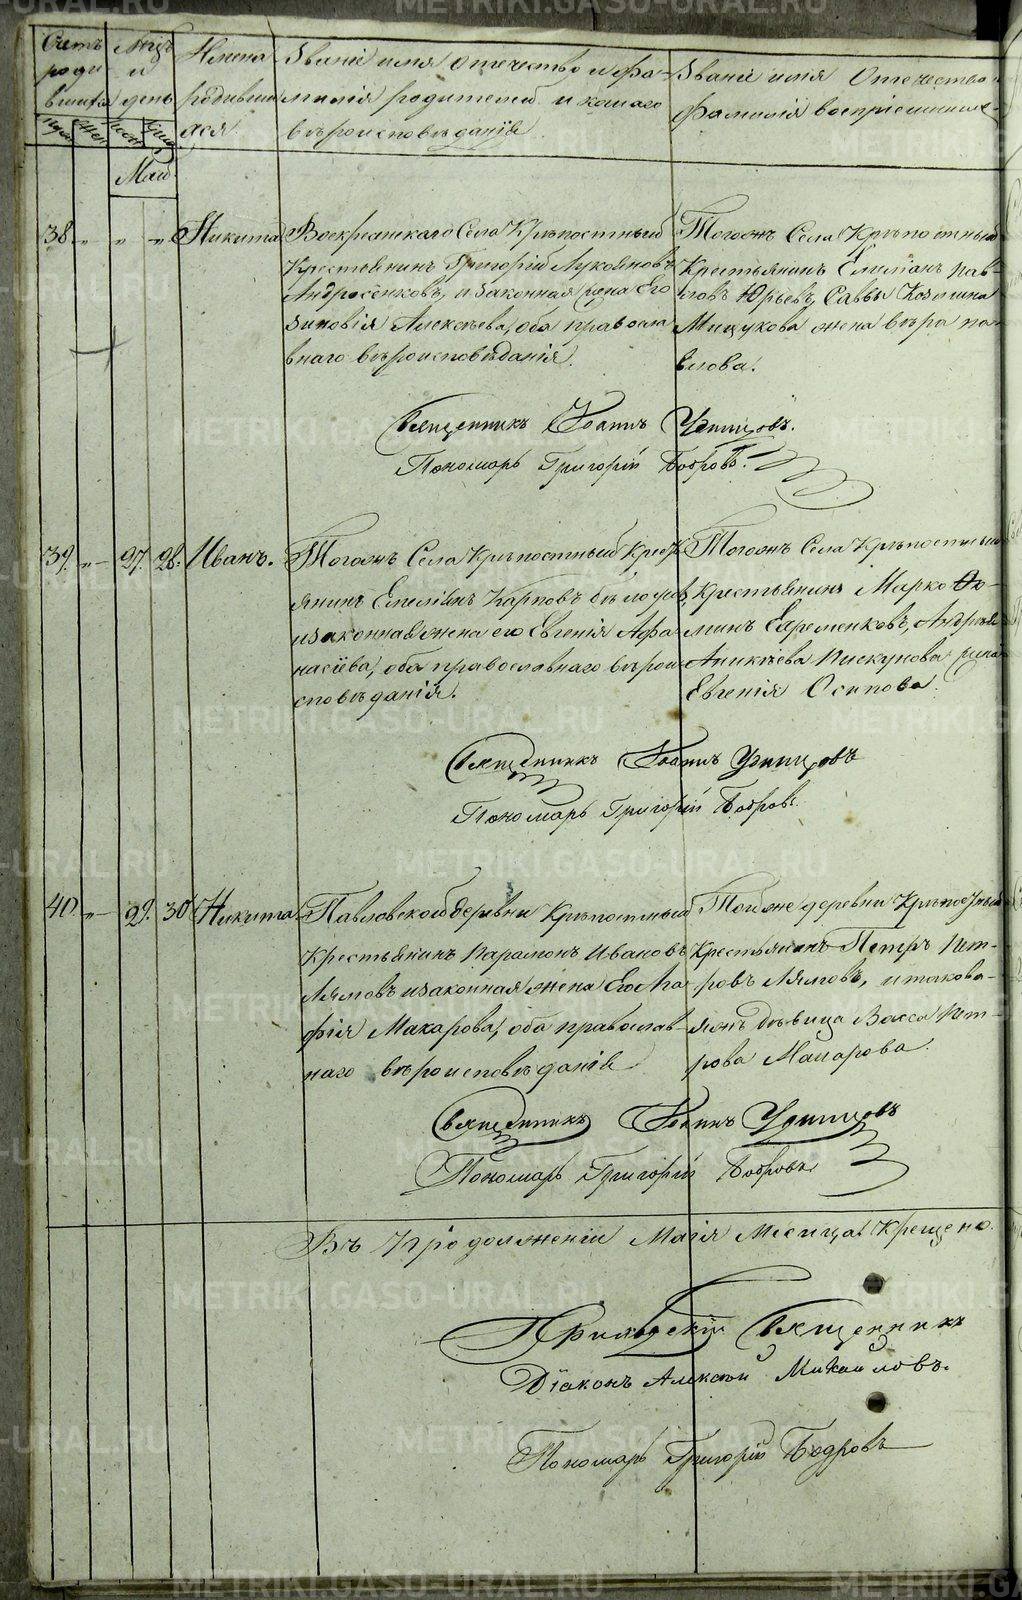 Счетъ родившихся
Мѣсяцъ и день
Имена родившихся
Званіе имя Отечество и фа-
милія родителей и какаго
вѣроисповѣданія
Званіе имя Отечество
фамилія воспріемник
Май
38 " " " Никита
Воскресенскаго Села Крѣпостный
Крестьянинъ Григорій Лукояновъ
Андросенковъ, и законная жена Его
Зиновія Алексѣева, оба правосла
внаго вѣроисповѣданія.
Тогожъ Села Крѣпостный
Крестьянинъ Емеліанъ Пав-
ловъ Юрьевъ, Саввы Козмина
Мицукова жена Вѣра Па-
влова.
Священникъ Іоаннъ Удинцовъ.
Пономарь Григорій Бобровъ.
39. " 27. 28. Иванъ.
Тогожъ Села Крѣпостный Крест
янинъ Емелиянъ Карповъ
и законная жена его Евгенія Афа
насіева, оба православнаго вѣрои
сповѣданія.
Тогожъ Села Крѣпостный
Крестьянинъ Марко Фо-
минъ Ефременковъ, Андрея
Аникіева Пискунова жена
Евгенія Осипова.
Священникъ Іоаннъ Удинцовъ
Пономарь Григорій Бобровъ.
40. " 29. 30 Никита.
Павловской деревни Крѣпостный
Крестьянинъ Парамонъ Ивановъ
Лямовъ и законная жена Его Ага
фія Макарова, оба православ
наго вѣроисповѣданія
Тойже деревни Крѣпостный
Крестьянинъ Петръ Пет-
ровъ Лямовъ, и такова-
яжъ дѣвица Васса Пет-
рова Макарова.
Священникъ Іоаннъ Удинцовъ
Пономарь Григорій Бобровъ
Въ продолженіи Маія Месяца Крещено.
Священникъ
Діаконъ Алексѣй Михайловъ.
Пономарь Григорій Бобровъ
METRIKI.GASO-URAL.RU